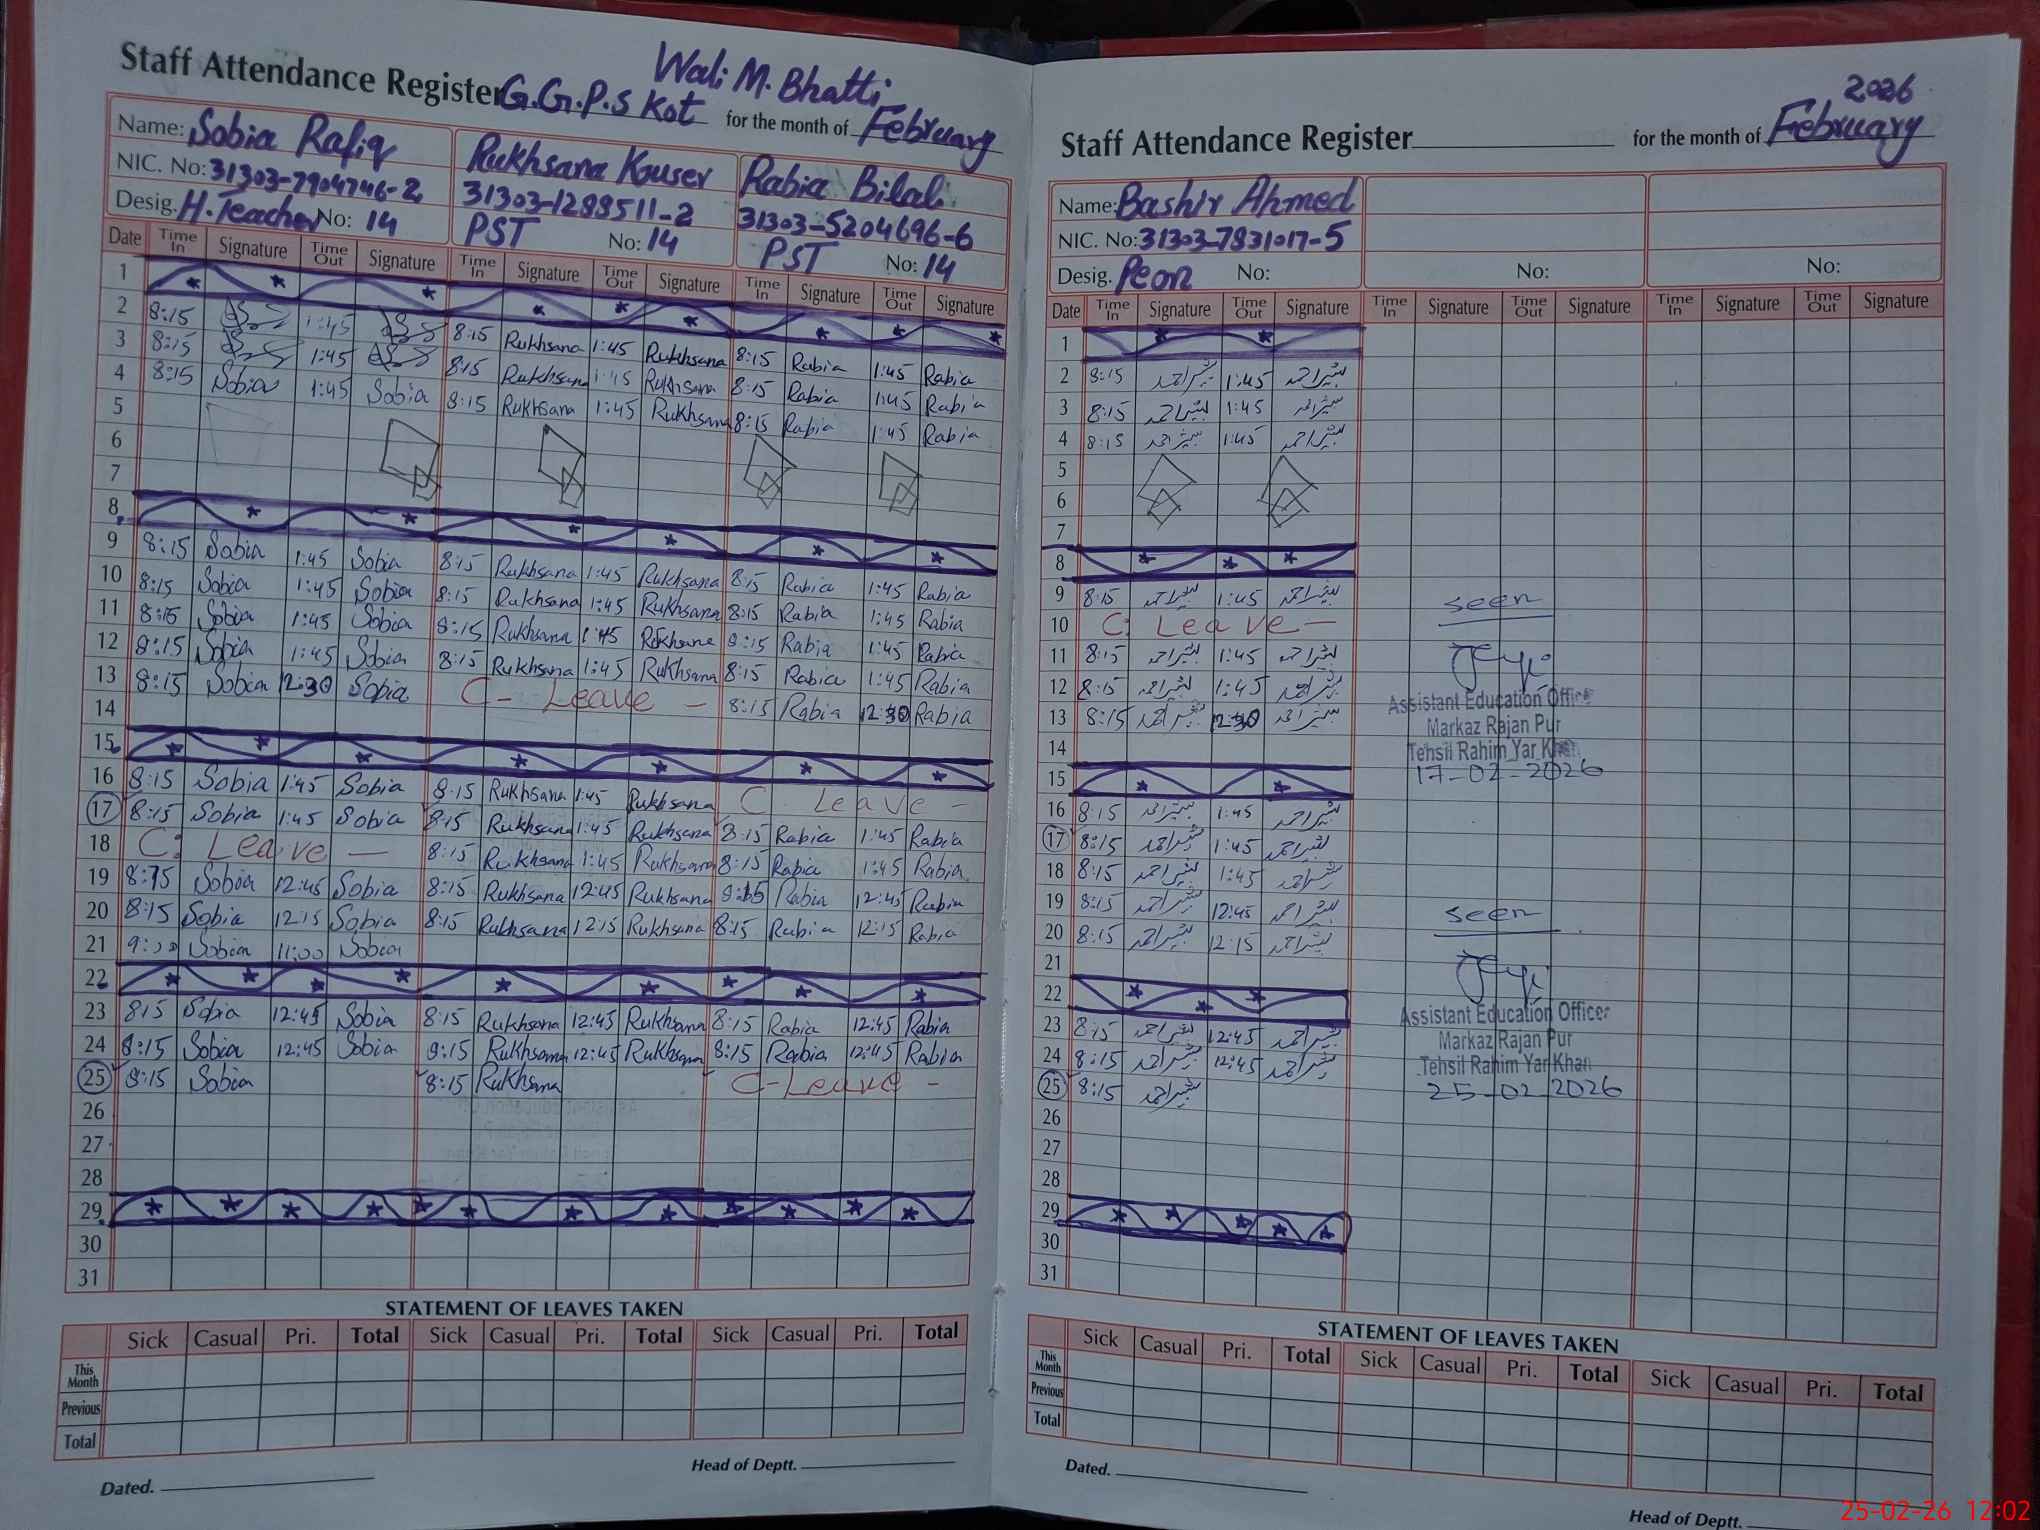 Wali M. Bhatti
Staff Attendance Register G.G.P.S Kot for the month of February
Name: Sobia Rafiq Rukhsana Kouser Rabia Bilal
NIC. No: 31303-7904746-2 31303-1288511-2 31303-5204696-6
Desig. H.Teacher No: 14 PST No: 14 PST No: 14
Date Time In Signature Time Out Signature Time In Signature Time Out Signature Time In Signature Time Out Signature
1
2 8:15 1:45 8:15 Rukhsana 1:45 Rukhsana 8:15 Rabia 1:45 Rabia
3 8:15 1:45 8:15 Rukhsana 1:45 Rukhsana 8:15 Rabia 1:45 Rabia
4 8:15 Sobia 1:45 Sobia 8:15 Rukhsana 1:45 Rukhsana 8:15 Rabia 1:45 Rabia
5
6
7
8
9 8:15 Sobia 1:45 Sobia 8:15 Rukhsana 1:45 Rukhsana 8:15 Rabia 1:45 Rabia
10 8:15 Sobia 1:45 Sobia 8:15 Rukhsana 1:45 Rukhsana 8:15 Rabia 1:45 Rabia
11 8:15 Sobia 1:45 Sobia 8:15 Rukhsana 1:45 Rukhsana 8:15 Rabia 1:45 Rabia
12 8:15 Sobia 1:45 Sobia 8:15 Rukhsana 1:45 Rukhsana 8:15 Rabia 1:45 Rabia
13 8:15 Sobia 12:30 Sobia C- Leave - 8:15 Rabia 12:30 Rabia
14
15
16 8:15 Sobia 1:45 Sobia 8:15 Rukhsana 1:45 Rukhsana C- Leave -
17 8:15 Sobia 1:45 Sobia 8:15 Rukhsana 1:45 Rukhsana 8:15 Rabia 1:45 Rabia
18 C: Leave — 8:15 Rukhsana 1:45 Rukhsana 8:15 Rabia 1:45 Rabia
19 8:15 Sobia 12:45 Sobia 8:15 Rukhsana 12:45 Rukhsana 8:15 Rabia 12:45 Rabia
20 8:15 Sobia 12:15 Sobia 8:15 Rukhsana 12:15 Rukhsana 8:15 Rabia 12:15 Rabia
21 9:00 Sobia 11:00 Sobia
22
23 8:15 Sobia 12:45 Sobia 8:15 Rukhsana 12:45 Rukhsana 8:15 Rabia 12:45 Rabia
24 8:15 Sobia 12:45 Sobia 8:15 Rukhsana 12:45 Rukhsana 8:15 Rabia 12:45 Rabia
25 8:15 Sobia 8:15 Rukhsana C-Leave -
26
27
28
29
30
31
STATEMENT OF LEAVES TAKEN
Sick Casual Pri. Total Sick Casual Pri. Total Sick Casual Pri. Total
This Month
Previous
Total
Dated. Head of Deptt.
2026
Staff Attendance Register for the month of February
Name: Bashir Ahmed
NIC. No: 31303-7831017-5
Desig. Peon No: No: No:
Date Time In Signature Time Out Signature Time In Signature Time Out Signature Time In Signature Time Out Signature
1
2 8:15 بشیراحمد 1:45 بشیراحمد
3 8:15 بشیراحمد 1:45 بشیراحمد
4 8:15 بشیراحمد 1:45 بشیراحمد
5
6
7
8
9 8:15 بشیراحمد 1:45 بشیراحمد
seen
10 C: Leave —
11 8:15 بشیراحمد 1:45 بشیراحمد
12 8:15 بشیراحمد 1:45 بشیراحمد
Assistant Education Officer
13 8:15 بشیراحمد 12:30 بشیراحمد
Markaz Rajan Pur
14
Tehsil Rahim Yar Khan
17-02-2026
15
16 8:15 بشیراحمد 1:45 بشیراحمد
17 8:15 بشیراحمد 1:45 بشیراحمد
18 8:15 بشیراحمد 1:45 بشیراحمد
19 8:15 بشیراحمد 12:45 بشیراحمد
seen
20 8:15 بشیراحمد 12:15 بشیراحمد
21
22
Assistant Education Officer
23 8:15 بشیراحمد 12:45 بشیراحمد
Markaz Rajan Pur
24 8:15 بشیراحمد 12:45 بشیراحمد
Tehsil Rahim Yar Khan
25 8:15 بشیراحمد
25-02-2026
26
27
28
29
30
31
STATEMENT OF LEAVES TAKEN
Sick Casual Pri. Total Sick Casual Pri. Total Sick Casual Pri. Total
This Month
Previous
Total
Dated.
Head of Deptt.
25-02-26 12:02